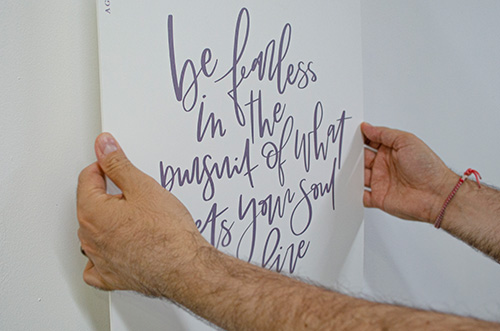 be fearless
in the
pursuit of what
ets your soul
fire